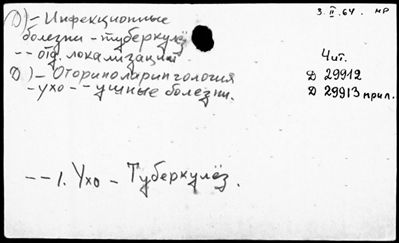 D)-Инфекционные
болезни - туберкулёз
-- отд. локализации.
D)-Оториноларингология
-ухо -- ушные болезни.
3.II.64. НР
Чит.
D 29912
D 29913 прил.
-- 1. Ухо - Туберкулёз.